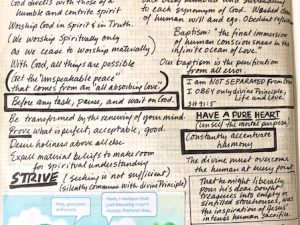 God dwells with those of a
humble and contrite spirit
Worship God in Spirit & in Truth.
(We worship Spiritually only
as we cease to worship materially)
With God, all things are possible
Get the "unspeakable peace"
that comes from an "all absorbing love"
Before any task, pause, and wait on God
Be transformed by the renewing of your mind.
Prove what is perfect, acceptable, good.
Desire holiness above all else
Expel material beliefs to make room
for Spiritual understanding
STRIVE (seeking is not sufficient)
(silently commune with divine Principle)
Hey, you look
different.
Yeah, I realized that
just blending in isn't
always the best idea.
to each synonym of God.
human will and ego. Obedient
Baptism: "the final immersion
of human consciousness in the
infinite ocean of Love."
Our baptism is the purification
from all error.
I am NOT SEPARATED from God
I OBEY only divine Principle,
Life and Love.
HAVE A PURE HEART
Constantly accentuate
harmony
The divine must overcome
the human at every point.
That he might liberally
pour his dear bought
treasures into empty
sin-filled storehouses, was
the inspiration of Jesus'
intense human sacrifice.